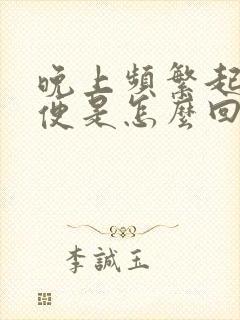 晚上頻繁起
便是怎麼回
李誠玉